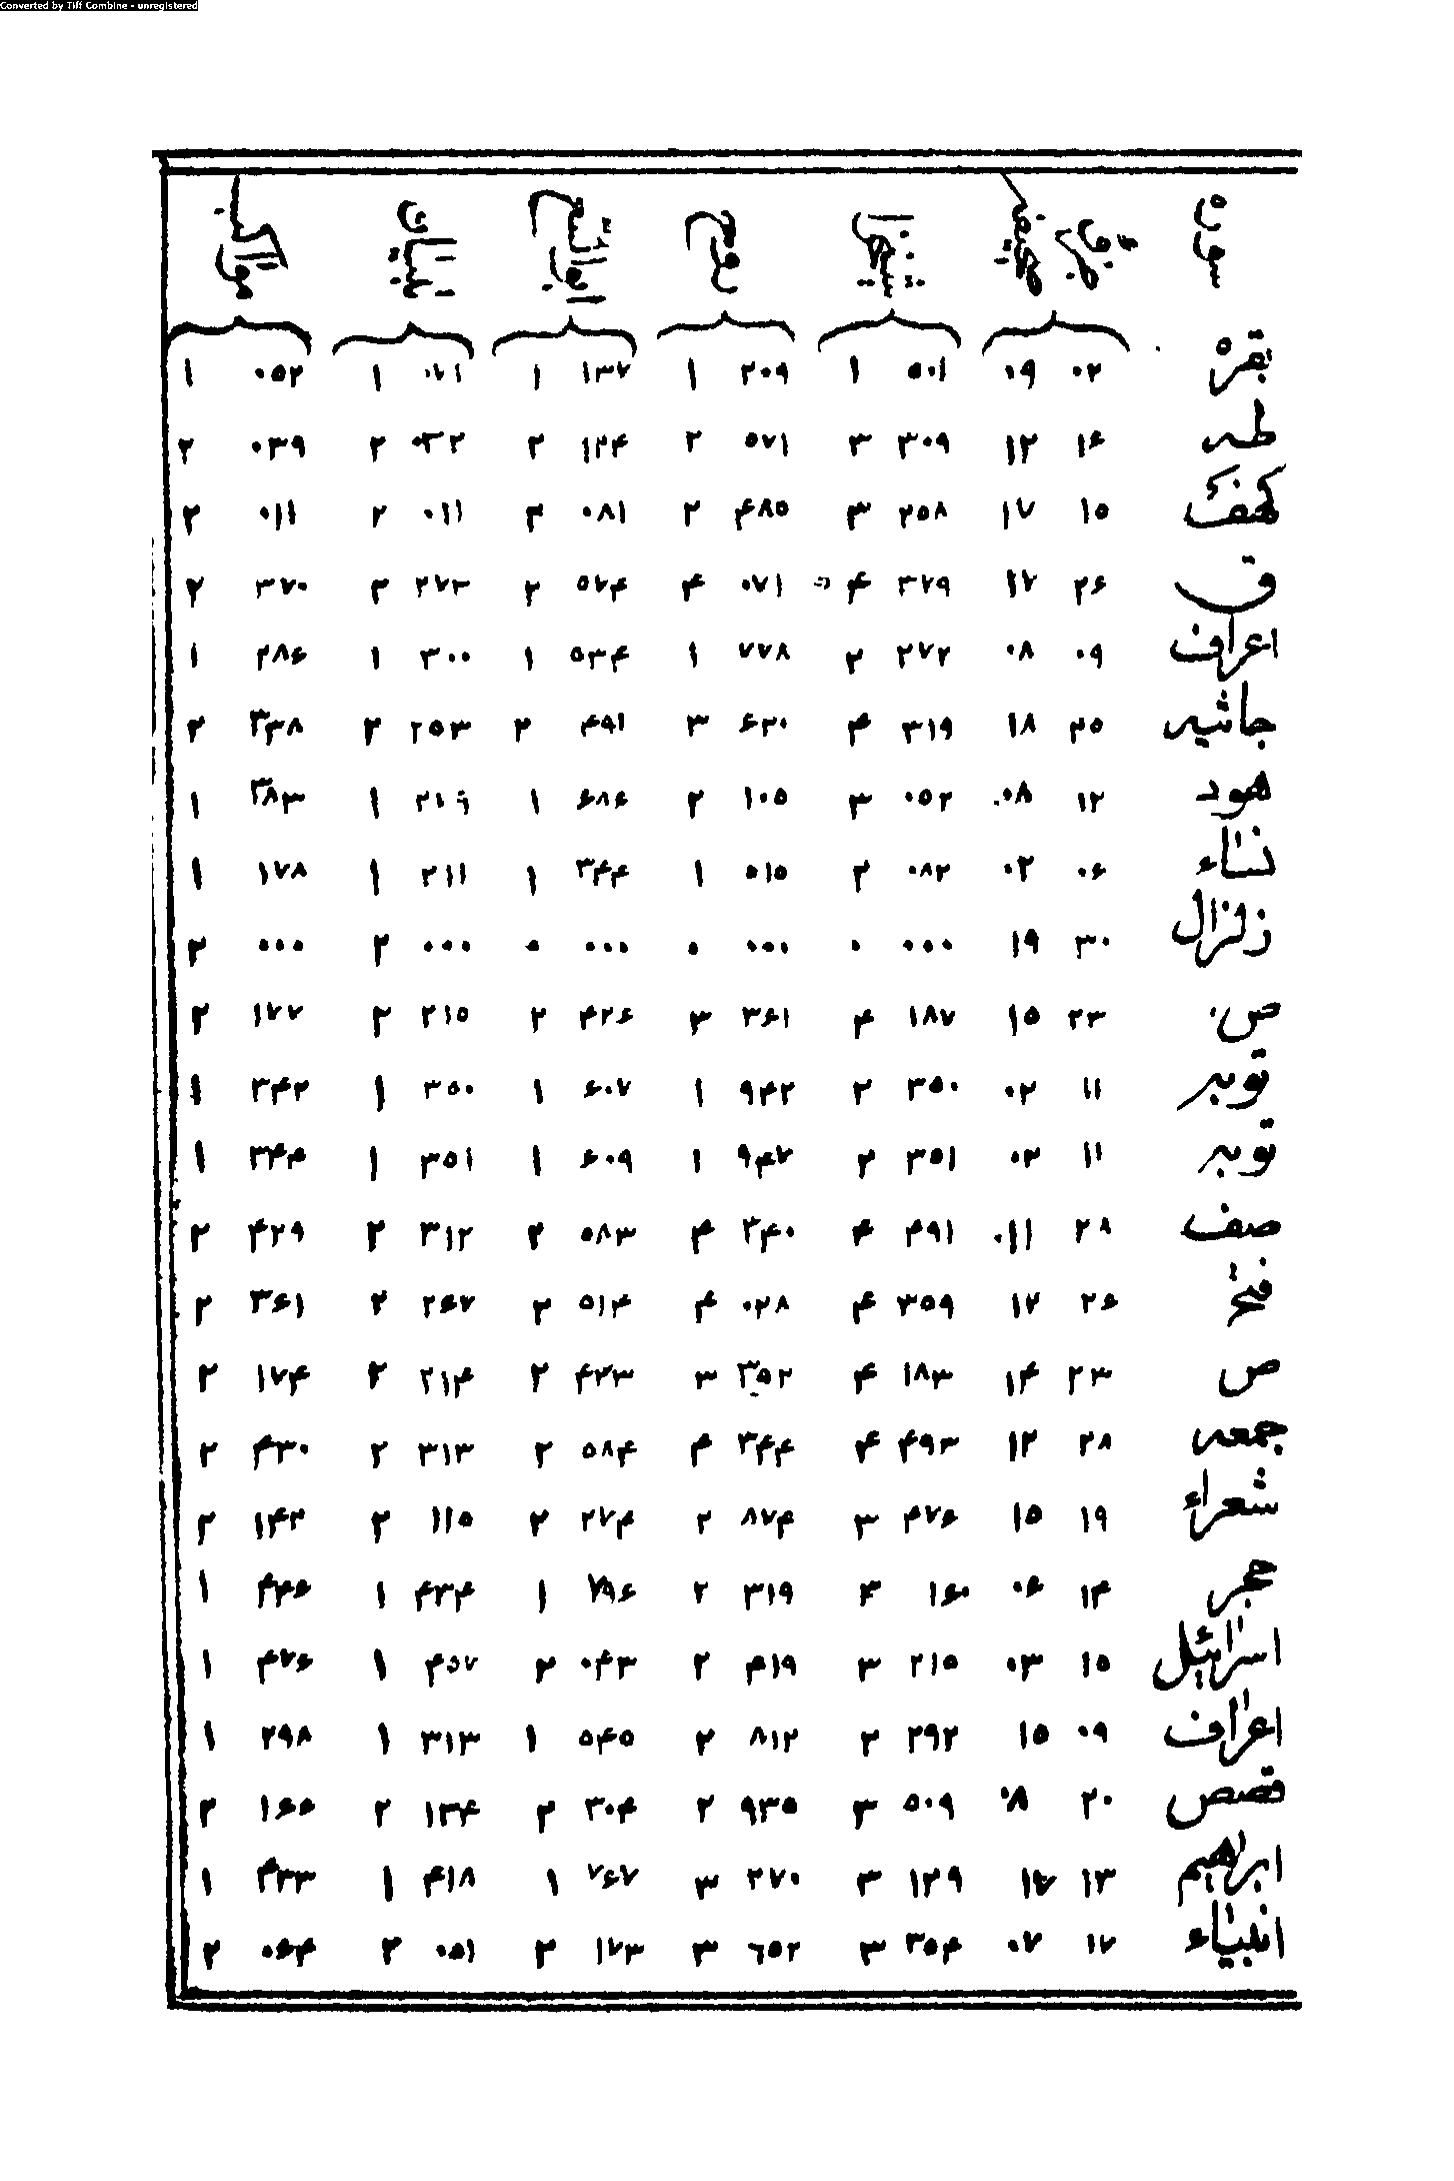 Converted by Tiff Combine - unregistered
بقره ۰۲ ۰۹ ۵۰۱ ۱ ۲۰۹ ۱ ۱۳۷ ۱ ۰۷۱ ۱ ۰۵۲ ۱
طه ۱۶ ۱۲ ۳۰۹ ۳ ۵۷۱ ۲ ۱۲۴ ۲ ۰۳۲ ۲ ۰۳۹ ۲
کهف ۱۵ ۱۷ ۲۵۸ ۳ ۴۸۵ ۲ ۰۸۱ ۲ ۰۱۱ ۲ ۰۱۱ ۲
ق ۲۶ ۱۷ ۳۷۹ ۴ ۰۷۱ ۴ ۵۷۴ ۲ ۲۷۳ ۲ ۳۷۰ ۲
اعراف ۰۹ ۰۸ ۲۷۲ ۲ ۷۷۸ ۱ ۵۳۴ ۱ ۳۰۰ ۱ ۲۸۶ ۱
جاثیه ۲۵ ۱۸ ۳۱۹ ۴ ۶۲۰ ۳ ۴۹۱ ۲ ۲۵۳ ۲ ۳۳۸ ۲
هود ۱۲ ۰۸ ۰۵۲ ۳ ۱۰۵ ۲ ۶۸۶ ۱ ۱ ۳۸۳ ۱
نساء ۰۶ ۰۲ ۰۸۲ ۲ ۵۱۵ ۱ ۳۴۴ ۱ ۲۱۱ ۱ ۱۷۸ ۱
زلزال ۳۰ ۱۹ ۰۰۰ ۰ ۰۰۰ ۰ ۰۰۰ ۰ ۰۰۰ ۲ ۰۰۰ ۲
ص ۲۳ ۱۵ ۱۸۷ ۴ ۳۶۱ ۳ ۴۲۶ ۲ ۲۱۵ ۲ ۱۷۷ ۲
توبه ۱۱ ۰۲ ۳۵۰ ۲ ۹۴۲ ۱ ۶۰۷ ۱ ۳۵۰ ۱ ۳۴۲ ۱
توبه ۱۱ ۰۲ ۳۵۱ ۲ ۹۴۷ ۱ ۶۰۹ ۱ ۳۵۱ ۱ ۳۴۴ ۱
صف ۲۸ ۱۱ ۴۹۱ ۴ ۳۴۰ ۴ ۵۸۳ ۲ ۳۱۲ ۲ ۴۲۹ ۲
فتح ۲۶ ۱۷ ۳۵۹ ۴ ۰۲۸ ۴ ۵۱۴ ۲ ۲۶۷ ۲ ۳۶۱ ۲
ص ۲۳ ۱۴ ۱۸۳ ۴ ۳۵۲ ۳ ۴۲۳ ۲ ۲۱۴ ۲ ۱۷۴ ۲
جمعه ۲۸ ۱۲ ۴۹۳ ۴ ۳۴۴ ۴ ۵۸۴ ۲ ۳۱۳ ۲ ۴۳۰ ۲
شعراء ۱۹ ۱۵ ۴۷۶ ۳ ۸۷۴ ۲ ۲۷۴ ۲ ۱۱۵ ۲ ۱۴۲ ۲
حجر ۱۴ ۰۶ ۱۶۰ ۳ ۳۱۹ ۲ ۷۹۶ ۱ ۴۳۴ ۱ ۴۴۶ ۱
اسرائیل ۱۵ ۰۳ ۲۱۵ ۳ ۴۱۹ ۲ ۰۴۳ ۲ ۴۵۷ ۱ ۴۷۶ ۱
اعراف ۰۹ ۱۵ ۲۹۲ ۲ ۸۱۲ ۲ ۵۴۵ ۱ ۳۱۳ ۱ ۲۹۸ ۱
قصص ۲۰ ۰۸ ۵۰۹ ۳ ۹۳۵ ۲ ۳۰۴ ۲ ۱۳۴ ۲ ۱۶۶ ۲
ابراهیم ۱۳ ۱۷ ۱۲۹ ۳ ۲۷۰ ۳ ۷۶۷ ۱ ۴۱۸ ۱ ۴۳۳ ۱
انبیاء ۱۷ ۰۷ ۳۵۴ ۳ ۶۵۲ ۳ ۱۷۳ ۲ ۰۵۱ ۲ ۰۶۴ ۲